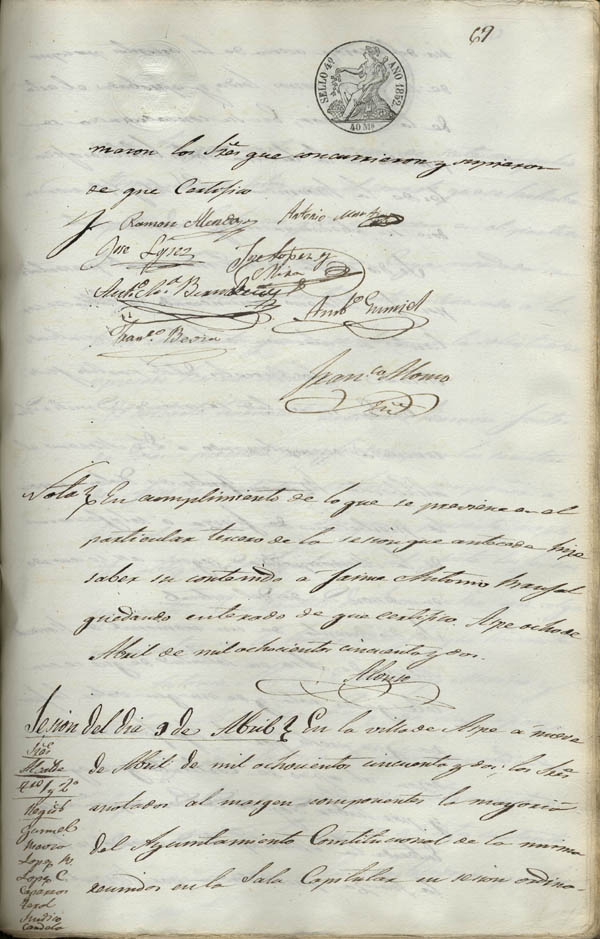 69
SELLO 4º AÑO 1852.
40 Ms
maron los Sres que concurrieron y supieron
de que Certifico
Ramon Antonio
Jose Lopez Jose Lopez y
Mira
Anto
Franco
Franco Alonso
Nota En cumplimiento de lo que se previene en el
particular tercero de la sesion que antecede hize
saber su contenido a Jaime Antonio
quedando enterado de que certifico. Aspe ocho de
Abril de mil ochocientos cincuenta y dos.
Alonso
Sesion del dia 9 de Abril En la villa de Aspe a nueve
de Abril de mil ochocientos cincuenta y dos: los Sres
anotados al margen componentes la mayoria
del Ayuntamiento Constitucional de la misma
reunidos en la Sala Capitular en sesion ordina-
Sres
Alcalde
1º y 2º
Regid
Lopez M.
Lopez C.
Caparros
Sindico
Candela